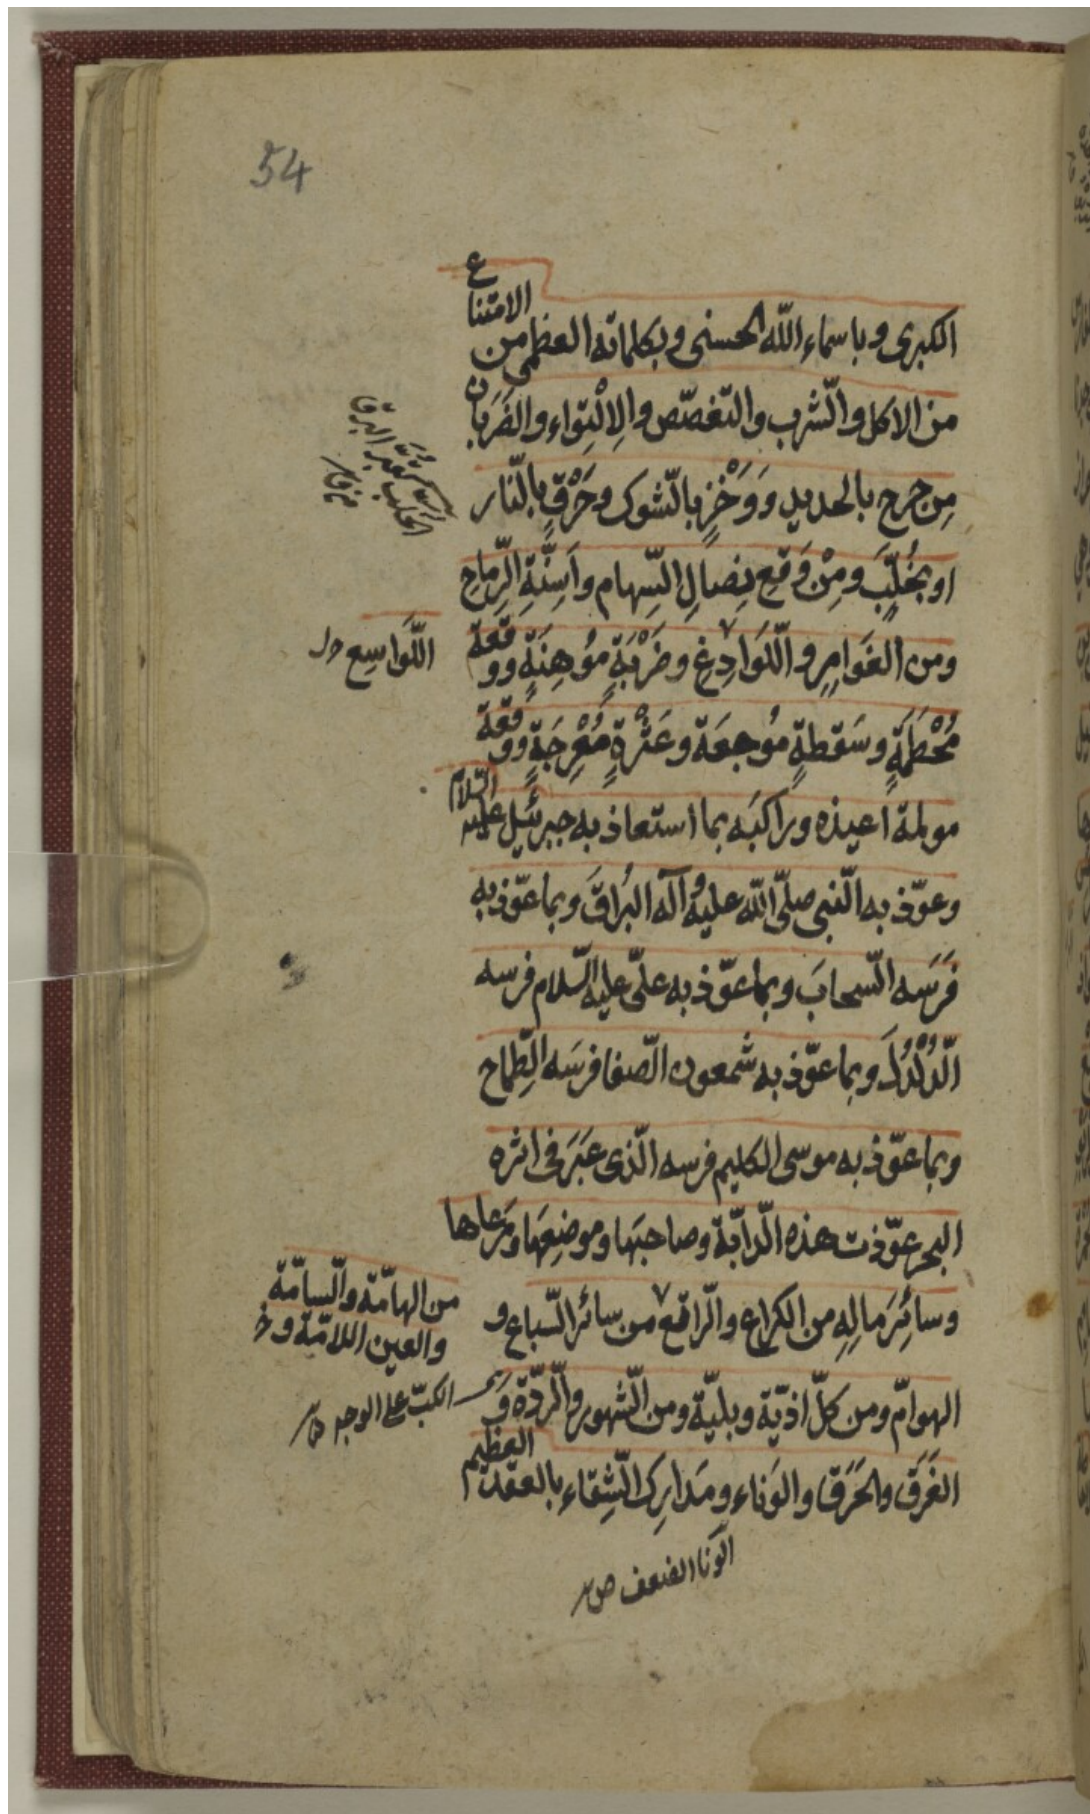 54
الكبرى و باسماء اللّه الحسنى و بكلماته العظمى من الامتناع
من الاكل و الشّرب و التّغصّص و الِالْتِواء و الضَرَبان
مِن جرح بالحديد وَ وَخْزٍ بالشّوك و حَرْقٍ بالنّار
او بخُلّبٍ وَ مِنْ وَقعِ نِصالِ السِّهام و اَسِنَّةِ الرِّماحِ
و من الغَوامِرِ و اللَّوَادِغِ و ضَرْبَةٍ مُوهِنَةٍ و وقعة
اللَّوَاسِع
مُحْطَمَةٍ و سَقطةٍ مُوجعَة و عَثْرةٍ مُعْرِجَةٍ و وقعة
مولمة اعيذه و راكبَه بما استعاذ به جبرئيل عليه السّلام
و عوّذ به النّبى صلّى اللّه عليه و آله البُراقَ و بما عوّذ به
فَرَسَه السّحابَ و بما عوّذ به علىّ عليه السّلام فرسه
الدُّلْدُلَ و بما عوّذ به شمعون الصّفا فرسَه الطِّماح
و بما عوّذ به موسى الكليم فرسه الّذى عَبَرَ فى اثره
البحر عوّذت هذه الدّابّة و صاحبَها و موضِعَها و مَرعاها
و سائِرَ مالِهِ من الكراع و الرّاقع من سائر السّباع و
من الهامّة و السّامّة
و العين اللامّة و
الهوامّ و من كلّ اذيّة و بليّة و من الشّهور و الرّدّة و
الكبّ على الوجه
الغَرَق و الحَرَق و الوَناء و مَدارِك الشِّقاء بالعقدة العظيم
الونا الضعف ص